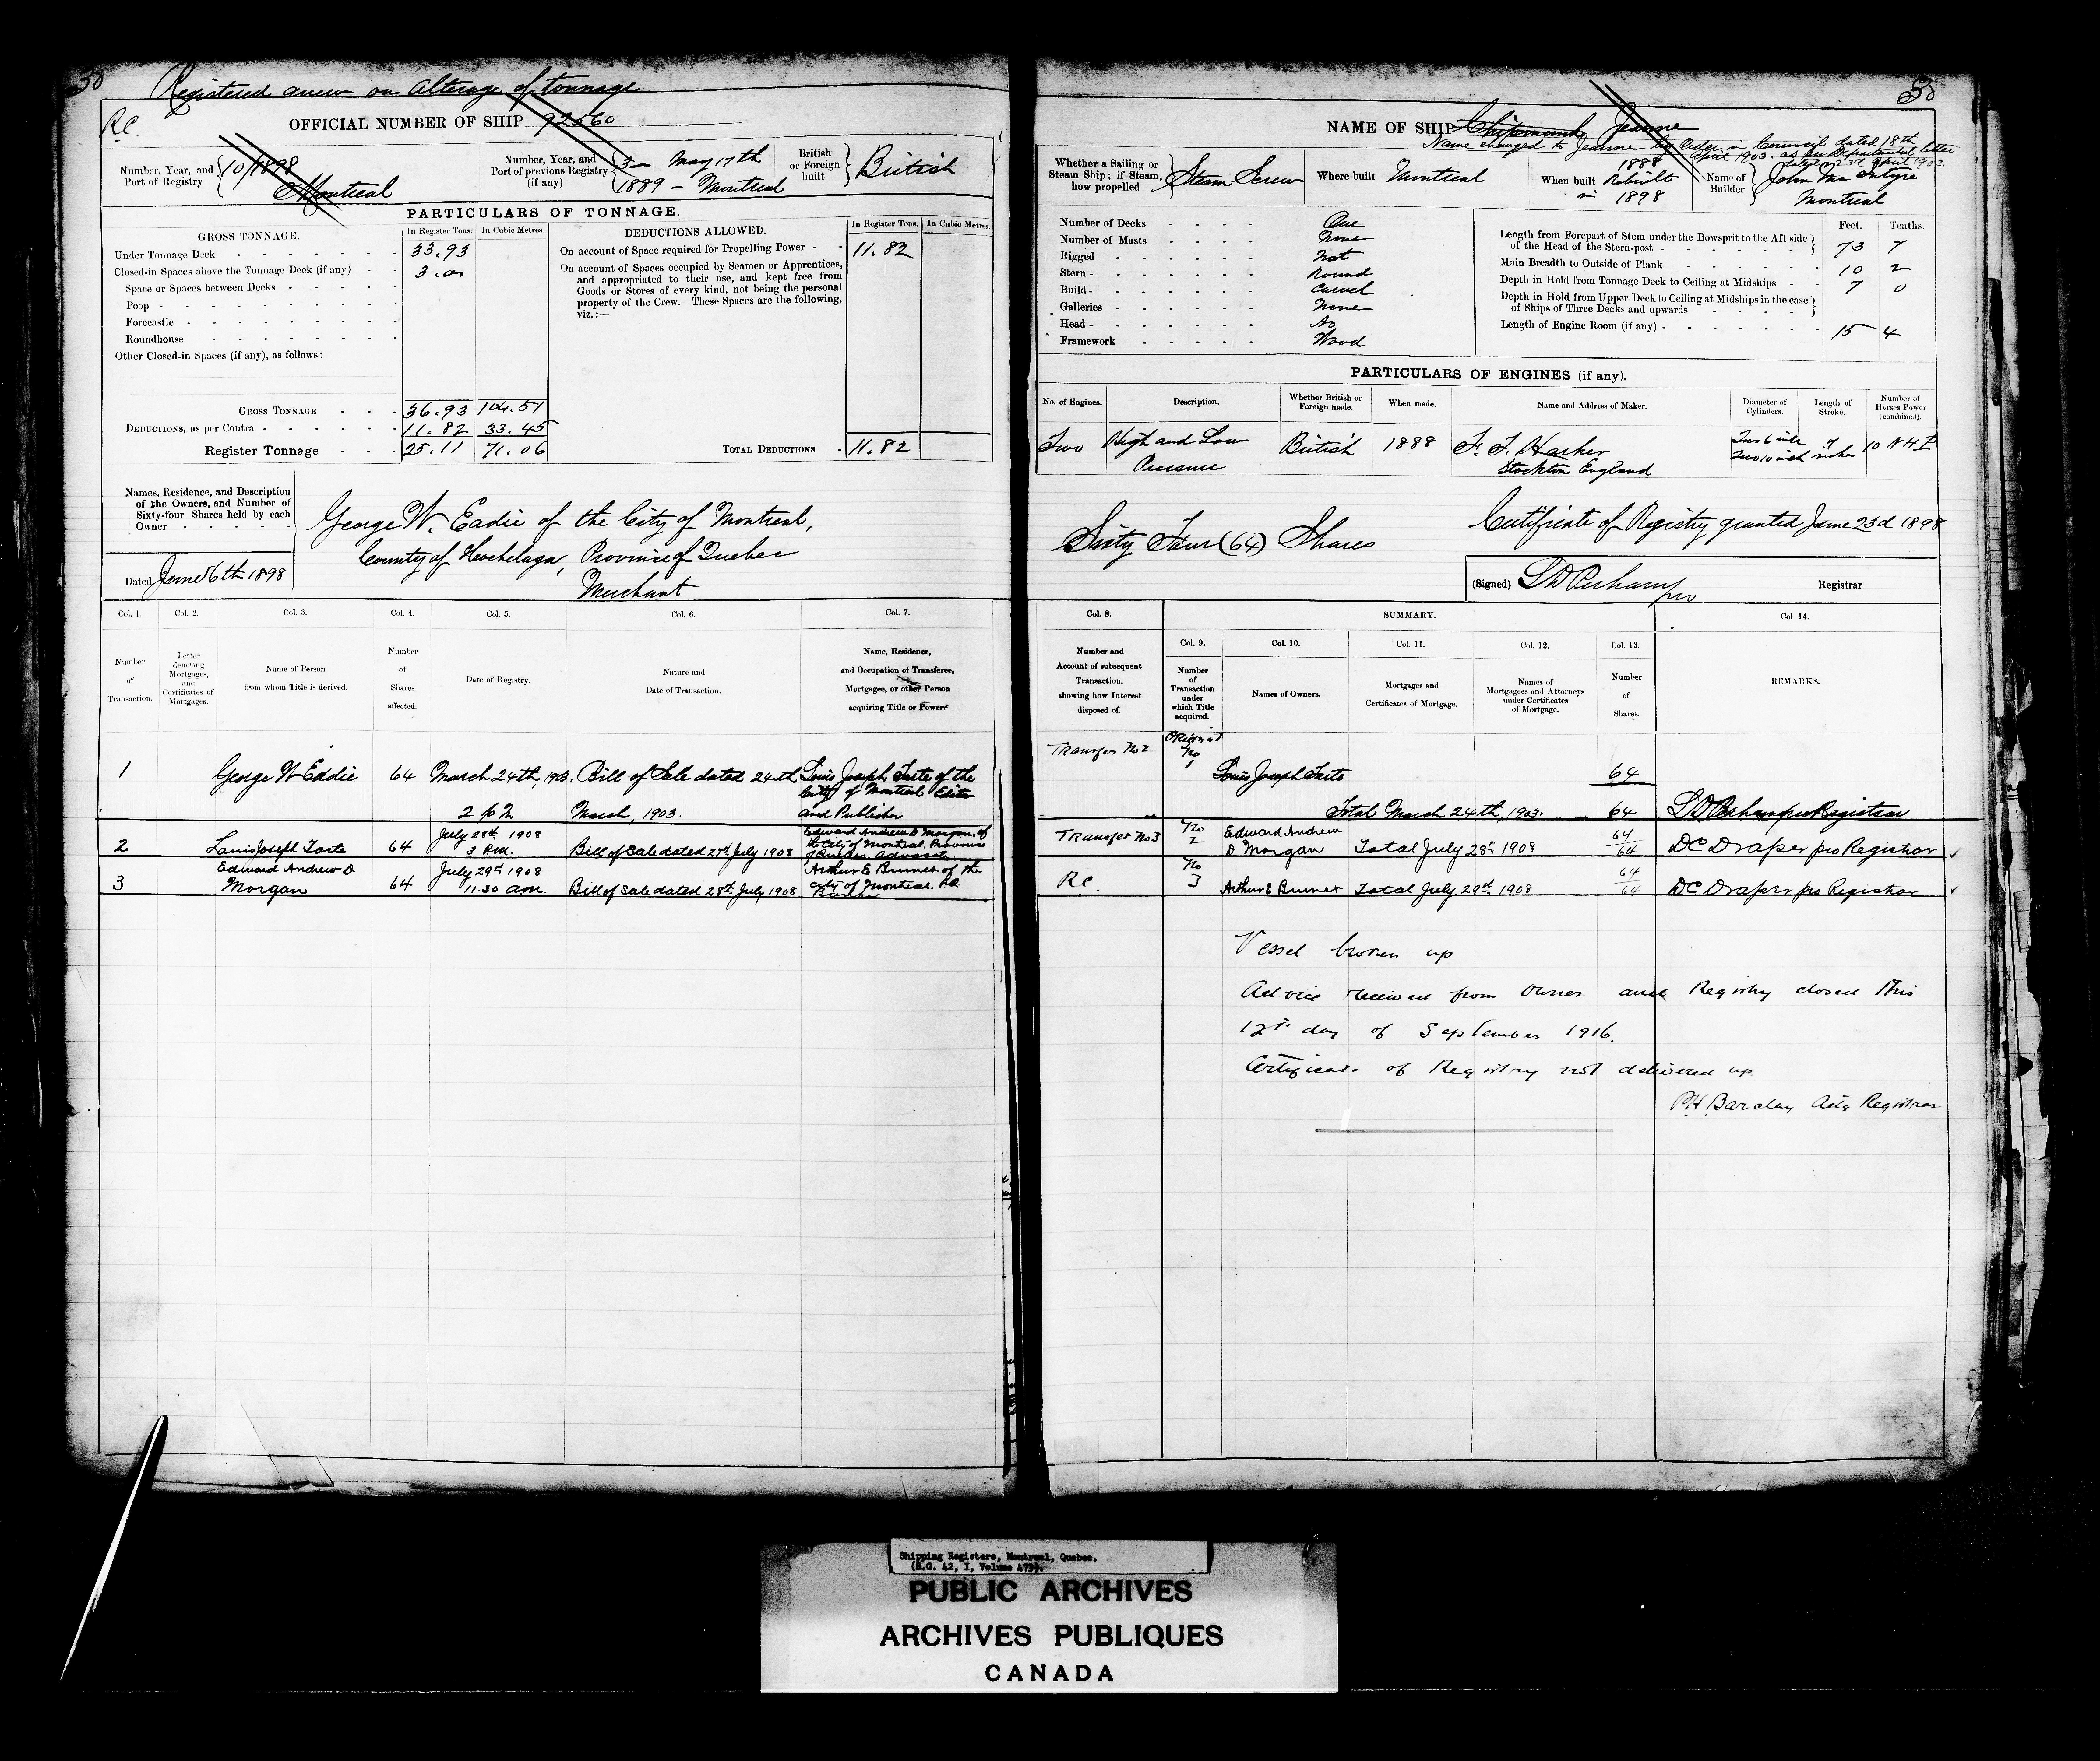 30
Registered anew on Alterage of tonnage
R.C.
OFFICIAL NUMBER OF SHIP 92560
Number, Year, and Port of Registry 10/1898 Montreal
Number, Year, and Port of previous Registry (if any) 3 - May 17th 1889 - Montreal
British or Foreign built British
PARTICULARS OF TONNAGE.
GROSS TONNAGE. In Register Tons. In Cubic Metres.
Under Tonnage Deck 33.93
Closed-in Spaces above the Tonnage Deck (if any) 3.00
Space or Spaces between Decks
Poop
Forecastle
Roundhouse
Other Closed-in Spaces (if any), as follows:
GROSS TONNAGE 36.93 104.51
DEDUCTIONS, as per Contra 11.82 33.45
Register Tonnage 25.11 71.06
DEDUCTIONS ALLOWED. In Register Tons. In Cubic Metres.
On account of Space required for Propelling Power 11.82
On account of Spaces occupied by Seamen or Apprentices,
and appropriated to their use, and kept free from
Goods or Stores of every kind, not being the personal
property of the Crew. These Spaces are the following,
viz.:—
TOTAL DEDUCTIONS 11.82
Names, Residence, and Description
of the Owners, and Number of
Sixty-four Shares held by each
Owner
George W. Eadie of the City of Montreal,
County of Hochelaga, Province of Quebec
Merchant
Dated June 6th 1898
Col. 1. Col. 2. Col. 3. Col. 4. Col. 5. Col. 6. Col. 7.
Number of Transaction.
Letter denoting Mortgages, and Certificates of Mortgages.
Name of Person from whom Title is derived.
Number of Shares affected.
Date of Registry.
Nature and Date of Transaction.
Name, Residence, and Occupation of Transferee, Mortgagee, or other Person acquiring Title or Power.
1 George W Eddie 64 March 24th, 1903. 2 p m Bill of Sale dated 24th March, 1903. Louis Joseph Tarte of the City of Montreal Editor and Publisher
2 Louis Joseph Tarte 64 July 28th 1908 3 P.M. Bill of Sale dated 27th July 1908 Edward Andrew D Morgan, of the City of Montreal, Province of Quebec Advocate
3 Edward Andrew D Morgan 64 July 29th 1908 11.30 am. Bill of Sale dated 28th July, 1908 Arthur E Brunet of the City of Montreal.
30
NAME OF SHIP Chipmunk Jeanne
Name changed to Jeanne by Order in Council dated 18th
April 1903. as per Departmental letter
dated 23d April 1903.
Whether a Sailing or Steam Ship; if Steam, how propelled Steam Screw
Where built Montreal
When built 1888 Rebuilt in 1898
Name of Builder John McIntyre Montreal
Number of Decks One
Number of Masts None
Rigged Not
Stern Round
Build Carvel
Galleries None
Head No
Framework Wood
Feet. Tenths.
Length from Forepart of Stem under the Bowsprit to the Aft side of the Head of the Stern-post 73 7
Main Breadth to Outside of Plank 10 2
Depth in Hold from Tonnage Deck to Ceiling at Midships 7 0
Depth in Hold from Upper Deck to Ceiling at Midships in the case of Ships of Three Decks and upwards
Length of Engine Room (if any) 15 4
PARTICULARS OF ENGINES (if any).
No. of Engines. Description. Whether British or Foreign made. When made. Name and Address of Maker. Diameter of Cylinders. Length of Stroke. Number of Horses Power (combined).
Two High and Low Pressure British 1888 F. T. Harker Stockton England Two 6 inch Two 10 inch 7 inches 10 N H P
Sixty Four (64) Shares
Certificate of Registry granted June 23d 1898
(Signed) Registrar
Col. 8. SUMMARY. Col 14.
Col. 9. Col. 10. Col. 11. Col. 12. Col. 13.
Number and Account of subsequent Transaction, showing how Interest disposed of.
Number of Transaction under which Title acquired.
Names of Owners.
Mortgages and Certificates of Mortgage.
Names of Mortgagees and Attorneys under Certificates of Mortgage.
Number of Shares.
REMARKS.
Transfer No 2 Original No 1 Louis Joseph Tarte 64
Total March 24th, 1903. 64 Registrar
Transfer No 3 No 2 Edward Andrew D Morgan Total July 28th 1908 64 64 DC Draper pro Registrar
R.C. No 3 Arthur E Brunet Total July 29th 1908 64 64 DC Draper pro Registrar
Vessel broken up
Advice received from Owner and Registry closed this
12th day of September 1916.
Certificate of Registry not delivered up
P.H. Barclay Actg Registrar
Shipping Registers, Montreal, Quebec.
(R.G. 42, I, Volume 479).
PUBLIC ARCHIVES
ARCHIVES PUBLIQUES
CANADA